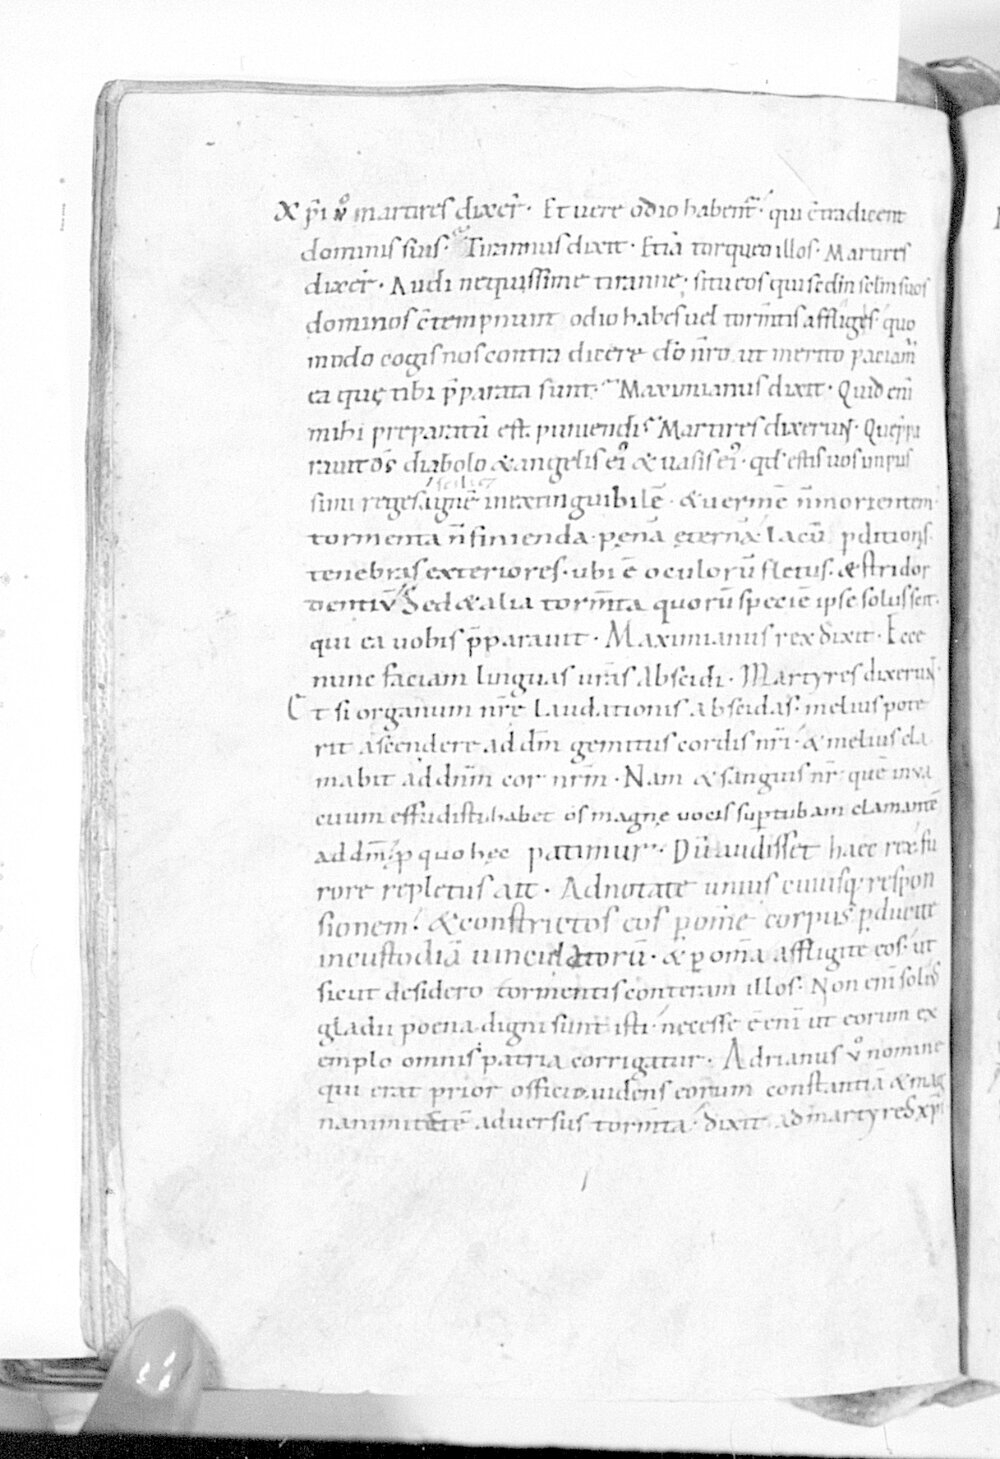 X p̄i v̊ martires dixer̄. Et uere odio habent̄. qui c̄tradicent
dominis suis. Tirannus dixit. Etiā torqueo illos. Martires
dixer̄. Audi nequissime tiranne. si tu eos qui sedm̄ seculm̄ suos
dominos c̄tempnunt odio habes uel torm̄tis affliges. quo
modo cogis nos contra dicere dō nr̄o. ut merito paciam̄
ea quę tibi p̄parata sunt. Maximianus dixit. Quid eni̅
mihi preparatū est puniendi. Martires dixerunt. Que p̄pa
rauit d̄s diabolo & angelis ei9 & uasis ei9. qd̄ estis uos impiis
simi reges. scilicet ignē inextinguibilē. & uermē n̄ morientem.
tormenta n̄ finienda. pęnā ęternā. lacū pditionis.
tenebras exteriores. ubi ē oculorū fletus. & stridor
dentiū. Sed & alia torm̄ta quorū speciē ipse solus scit.
qui ea uobis p̄parauit. Maximianus rex dixit. Ecce
nunc faciam linguas urā̄s abscidi. Martyres dixerunt
Et si organum nr̄e laudationis abscidas. melius pote
rit ascendere ad dm̄ gemitus cordis nr̄i. & melius cla
mabit ad dnm̄ cor nr̄m. Nam & sanguis nr̄ quē inua
cuum effudisti habet os magnę uocis sup tubam clamantē
ad dm̄. p quo hęc patimur. Dū audisset haec rex. fu
rore repletus ait. Adnotate unius cuiusq; respon
sionem. & constrictos eos p om̄e corpus pducite
in custodiā uinculatorū. & p om̄ia affligite eos. ut
sicut desidero tormentis conteram illos. Non eni̅ solius
gladii poena digni sunt isti. necesse ē eni̅ ut eorum ex
emplo omnis patria corrigatur. Adrianus v̊ nomine
qui erat prior officio. uidens eorum constantiā & mag
nanimitatē aduersus torm̄ta. dixit ad martyres xp̄i